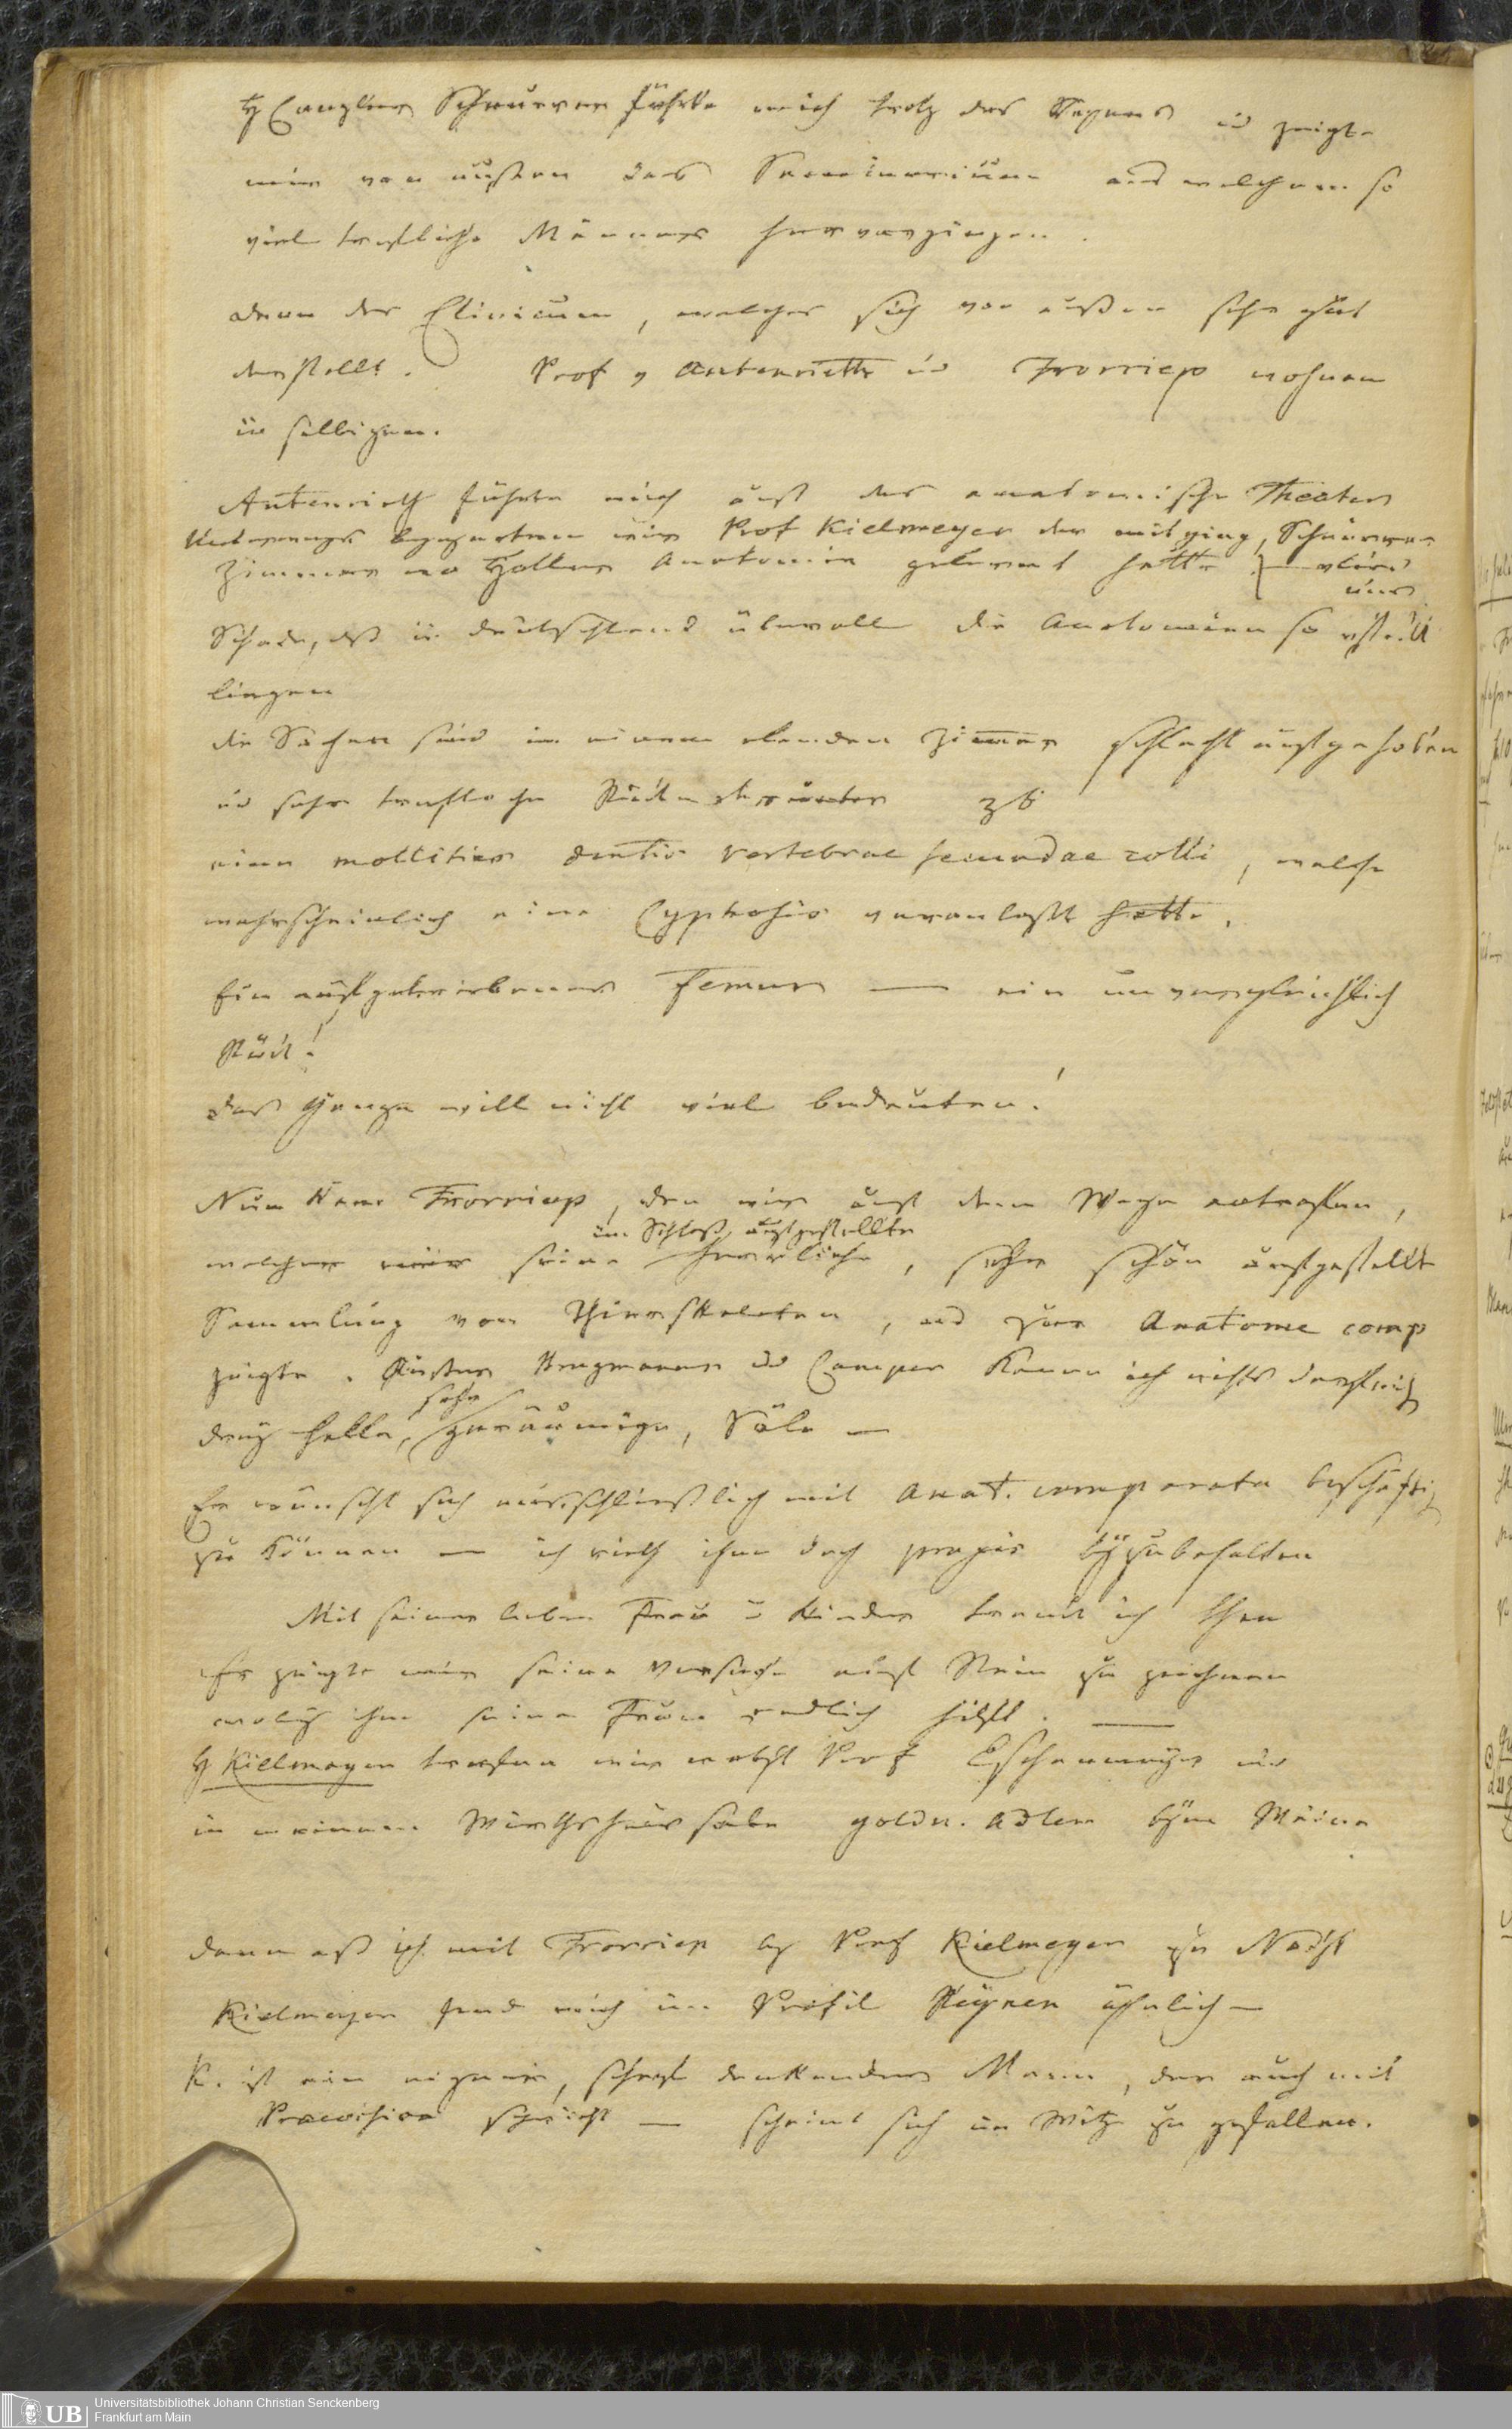 H Canzler Schnurrer führte mich trotz des Regens ü zeigte
mir von aussen das Seminarium aus welchem so
viele trefliche Männer hervorgingen.
dann das Clinicum, welches sich von aussen sehr gut
darstellt. Prof v Autenrieth ü Froriep wohnen
in selbigem.
Autenrieth führte mich auf das anatomische Theater
Unterwegs begegneten wir Prof Kielmeyer der mitging, Schnurrer
Zimmer wo Haller Anatomie gelernt hatte
uns
Schade, dß in Deutschland überall die Anatomien so
liegen
die Sachen sind in einem elenden Zimmer schlecht aufgehoben
ü sehr trefliche Stücke darunter zb
eine mollities dentis vertebrae secundae colli, welche
wahrscheinlich eine Cyphosis veranlasst hatte.
Ein aufgetriebener Femur — ein unvergleichlich
Stück!
das Ganze will nicht viel bedeuten!
Nun kam Froriep, den wir auf dem Wege antrafen,
im Schloss aufgestellte
welcher mir seine herrliche, sehr schön aufgestellt
Sammlung von Thierskeleten, und zur Anatome comp
zeigte. Ausser Brugmanns ü Camper kenne ich nichts dergleich
sehr
drey helle, geräumige, Säle —
Er wünscht sich ausschliesslich mit Anat. comparata beschäftig
zu können — ich rieth ihm doch praxis beyzubehalten
Mit seiner lieben Frau ü Kinder trank ich Thee
Er zeigte mir seine Versuche auf Stein zu zeichnen
wobey ihm seine Frau redlich hilft. —
H Kielmeyer trafen wir nebst Prof Eschenmeyer
in meinem Wirthshause goldn. Adler beym Weine
dann ass ich mit Froriep bey Prof Kielmeyer zu Nacht
Kielmeyer fand mich im Profil Heynen ähnlich —
K. ist ein eigener, scharf denkender Mann, der auch mit
Praecision spricht — scheint sich im Witz zu gefallen.
UB
Universitätsbibliothek Johann Christian Senckenberg
Frankfurt am Main